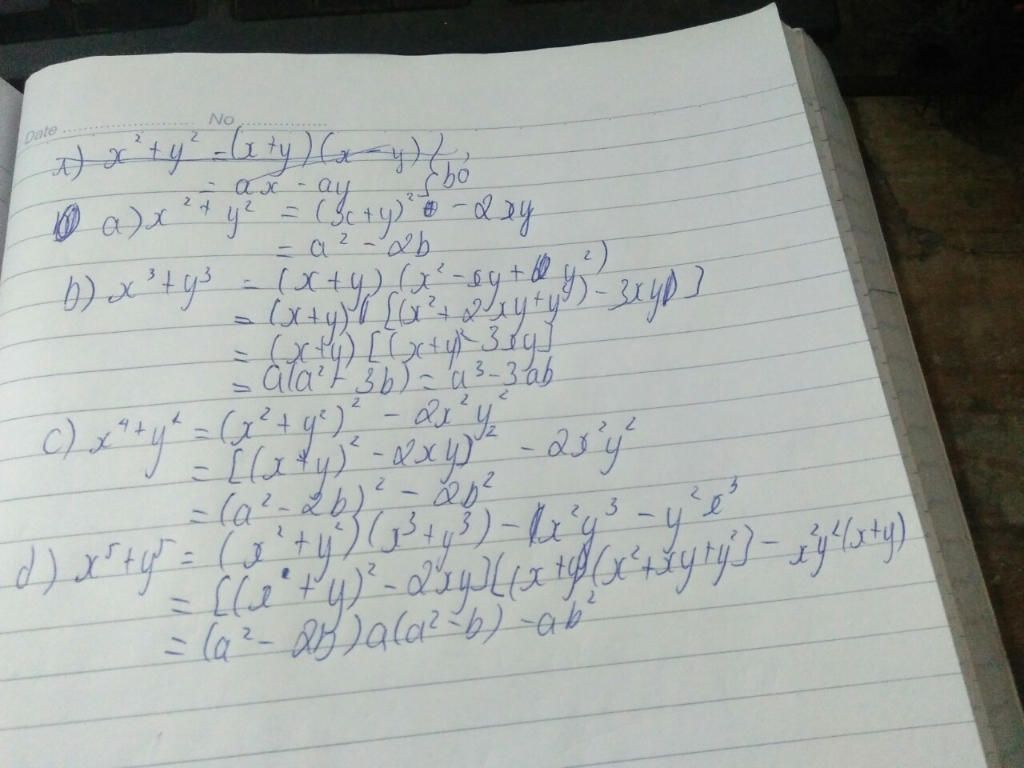 Date ........................ No ........................
x) x² + y² = (x+y)(x-y)
= ax - ay {bỏ
a) x² + y² = (x+y)² - 2xy
= a² - 2b
b) x³ + y³ = (x+y)(x² - xy + y²)
= (x+y) [(x² + 2xy + y²) - 3xy]
= (x+y) [(x+y)² - 3xy]
= a(a² - 3b) = a³ - 3ab
c) x⁴ + y⁴ = (x² + y²)² - 2x²y²
= [(x+y)² - 2xy]² - 2x²y²
= (a² - 2b)² - 2b²
d) x⁵ + y⁵ = (x² + y²)(x³ + y³) - x²y³ - y²x³
= [(x+y)² - 2xy][(x+y)(x² + xy + y²] - x²y²(x+y)
= (a² - 2b)a(a² - b) - ab²